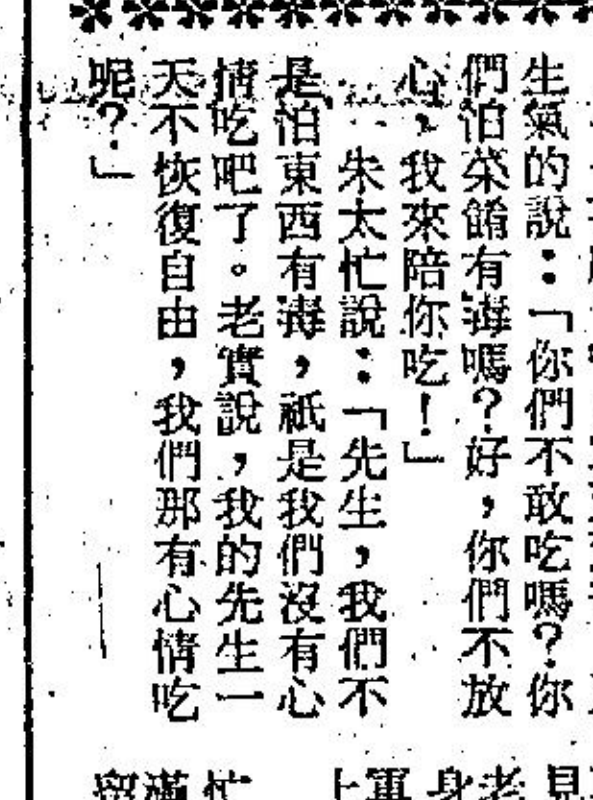 生氣的說：「你們不敢吃嗎？你
們怕菜餚有毒嗎？好，你們不放
心，我來陪你吃！」
朱太忙說：「先生，我們不
是怕東西有毒，祇是我們沒有心
情吃吧了。老實說，我的先生一
天不恢復自由，我們那有心情吃
呢？」
見
老
身
軍
上
忙
滿